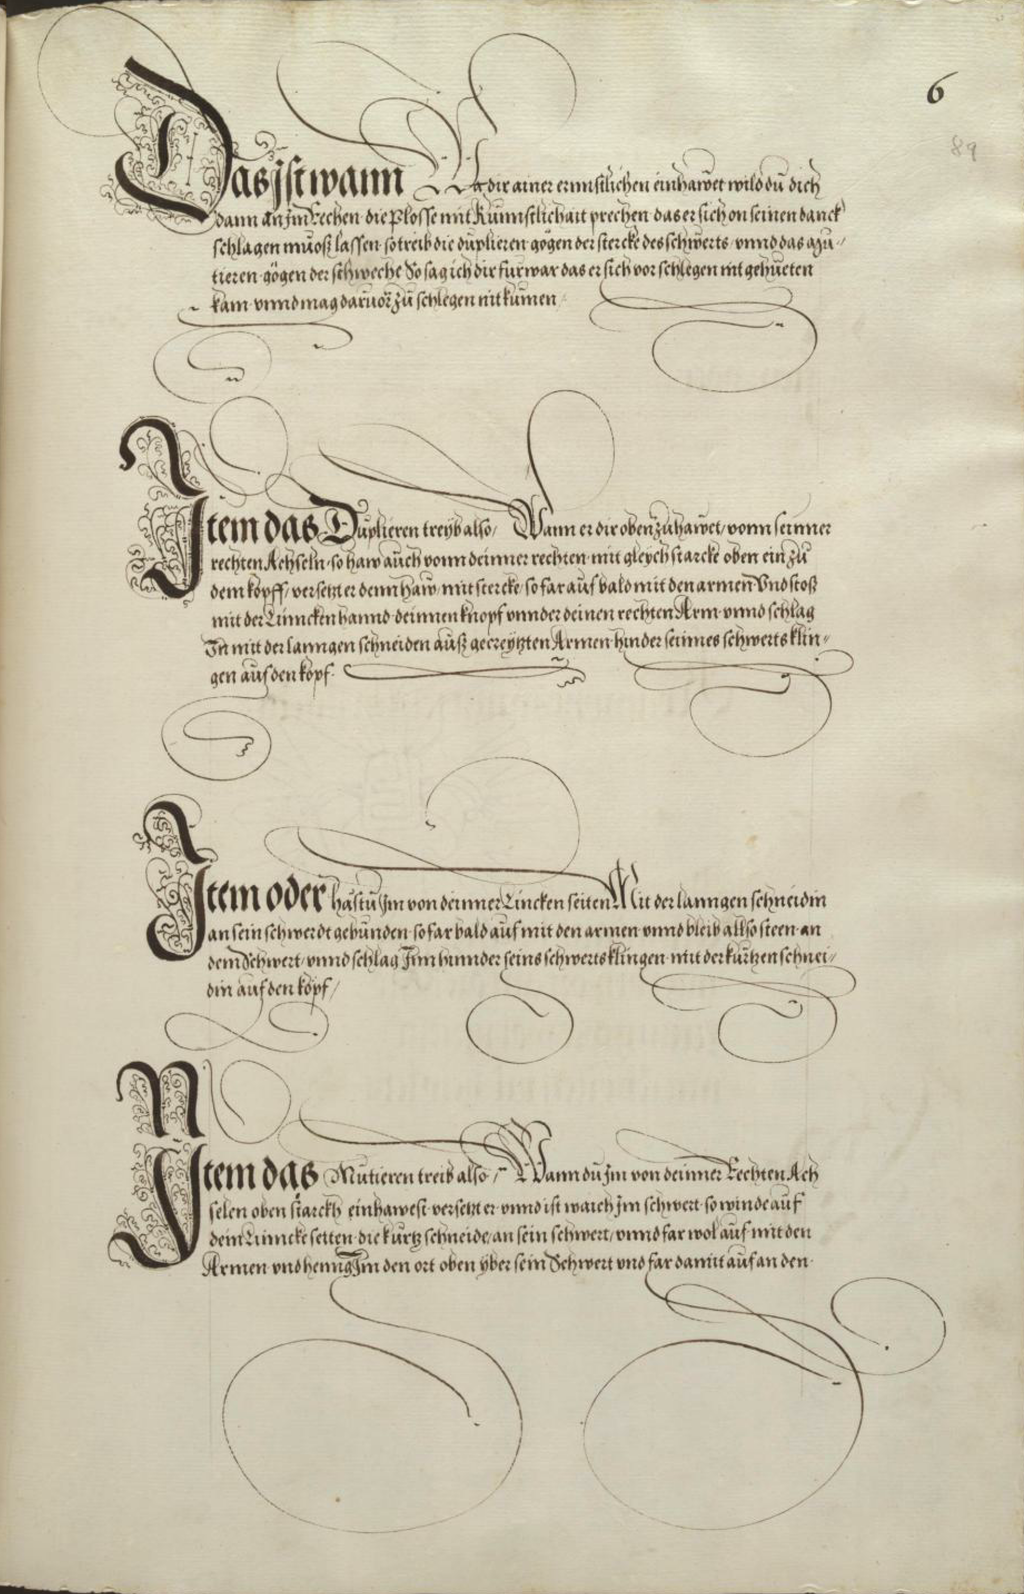 6
89
Das ist wann Wa dir ainer ernnstlichen einhawet wild du dich
dann an Im Rechen die Plosse mit Kunnstlichait prechen das er sich on seinen danck
schlagen muoß lassen so treib die duplieren gögen der stercke des schwerts vnnd das Mu-
tieren gögen der schweche So sag ich dir fur war das er sich vor schlegen nit gehueten
kam vnnd mag daruor zu schlegen nit kumen
Item das Duplieren treyb also / Wann er dir oben zu hawet vonn seinner
rechten Achseln so haw auch vonn deinner rechten mit gleych starcke oben ein zu
dem kopff / versetzt er denn haw mit stercke / so far auf bald mit den armen Vnd stoß
mit der Linncken hannd deinnen knopf vnnder deinen rechten Arm vnnd schlag
In mit der lanngen schneiden auß gecreytzten Armen hinder seinnes schwerts klin-
gen auf den kopf.
Item oder hastu Im von deinner Lincken seiten Mit der lanngen schneidin
an sein schwerdt gebunden so far bald auf mit den armen vnnd bleib allso steen an
dem Schwert / vnnd schlag Im hinnder seins schwerts klingen mit der kurtzen schnei-
din auf den kopf /
Item das Mutieren treib also / Wann du Im von deinner Rechten Ach
selen oben starckh einhawest versetzt er vnnd ist waich Im schwert so winde auf
dein Linncke seiten die kurtz schneide an sein schwert / vnnd far wol auf mit den
Armen vnd henng Im den ort oben yber sein Schwert vnd far damit auf an den